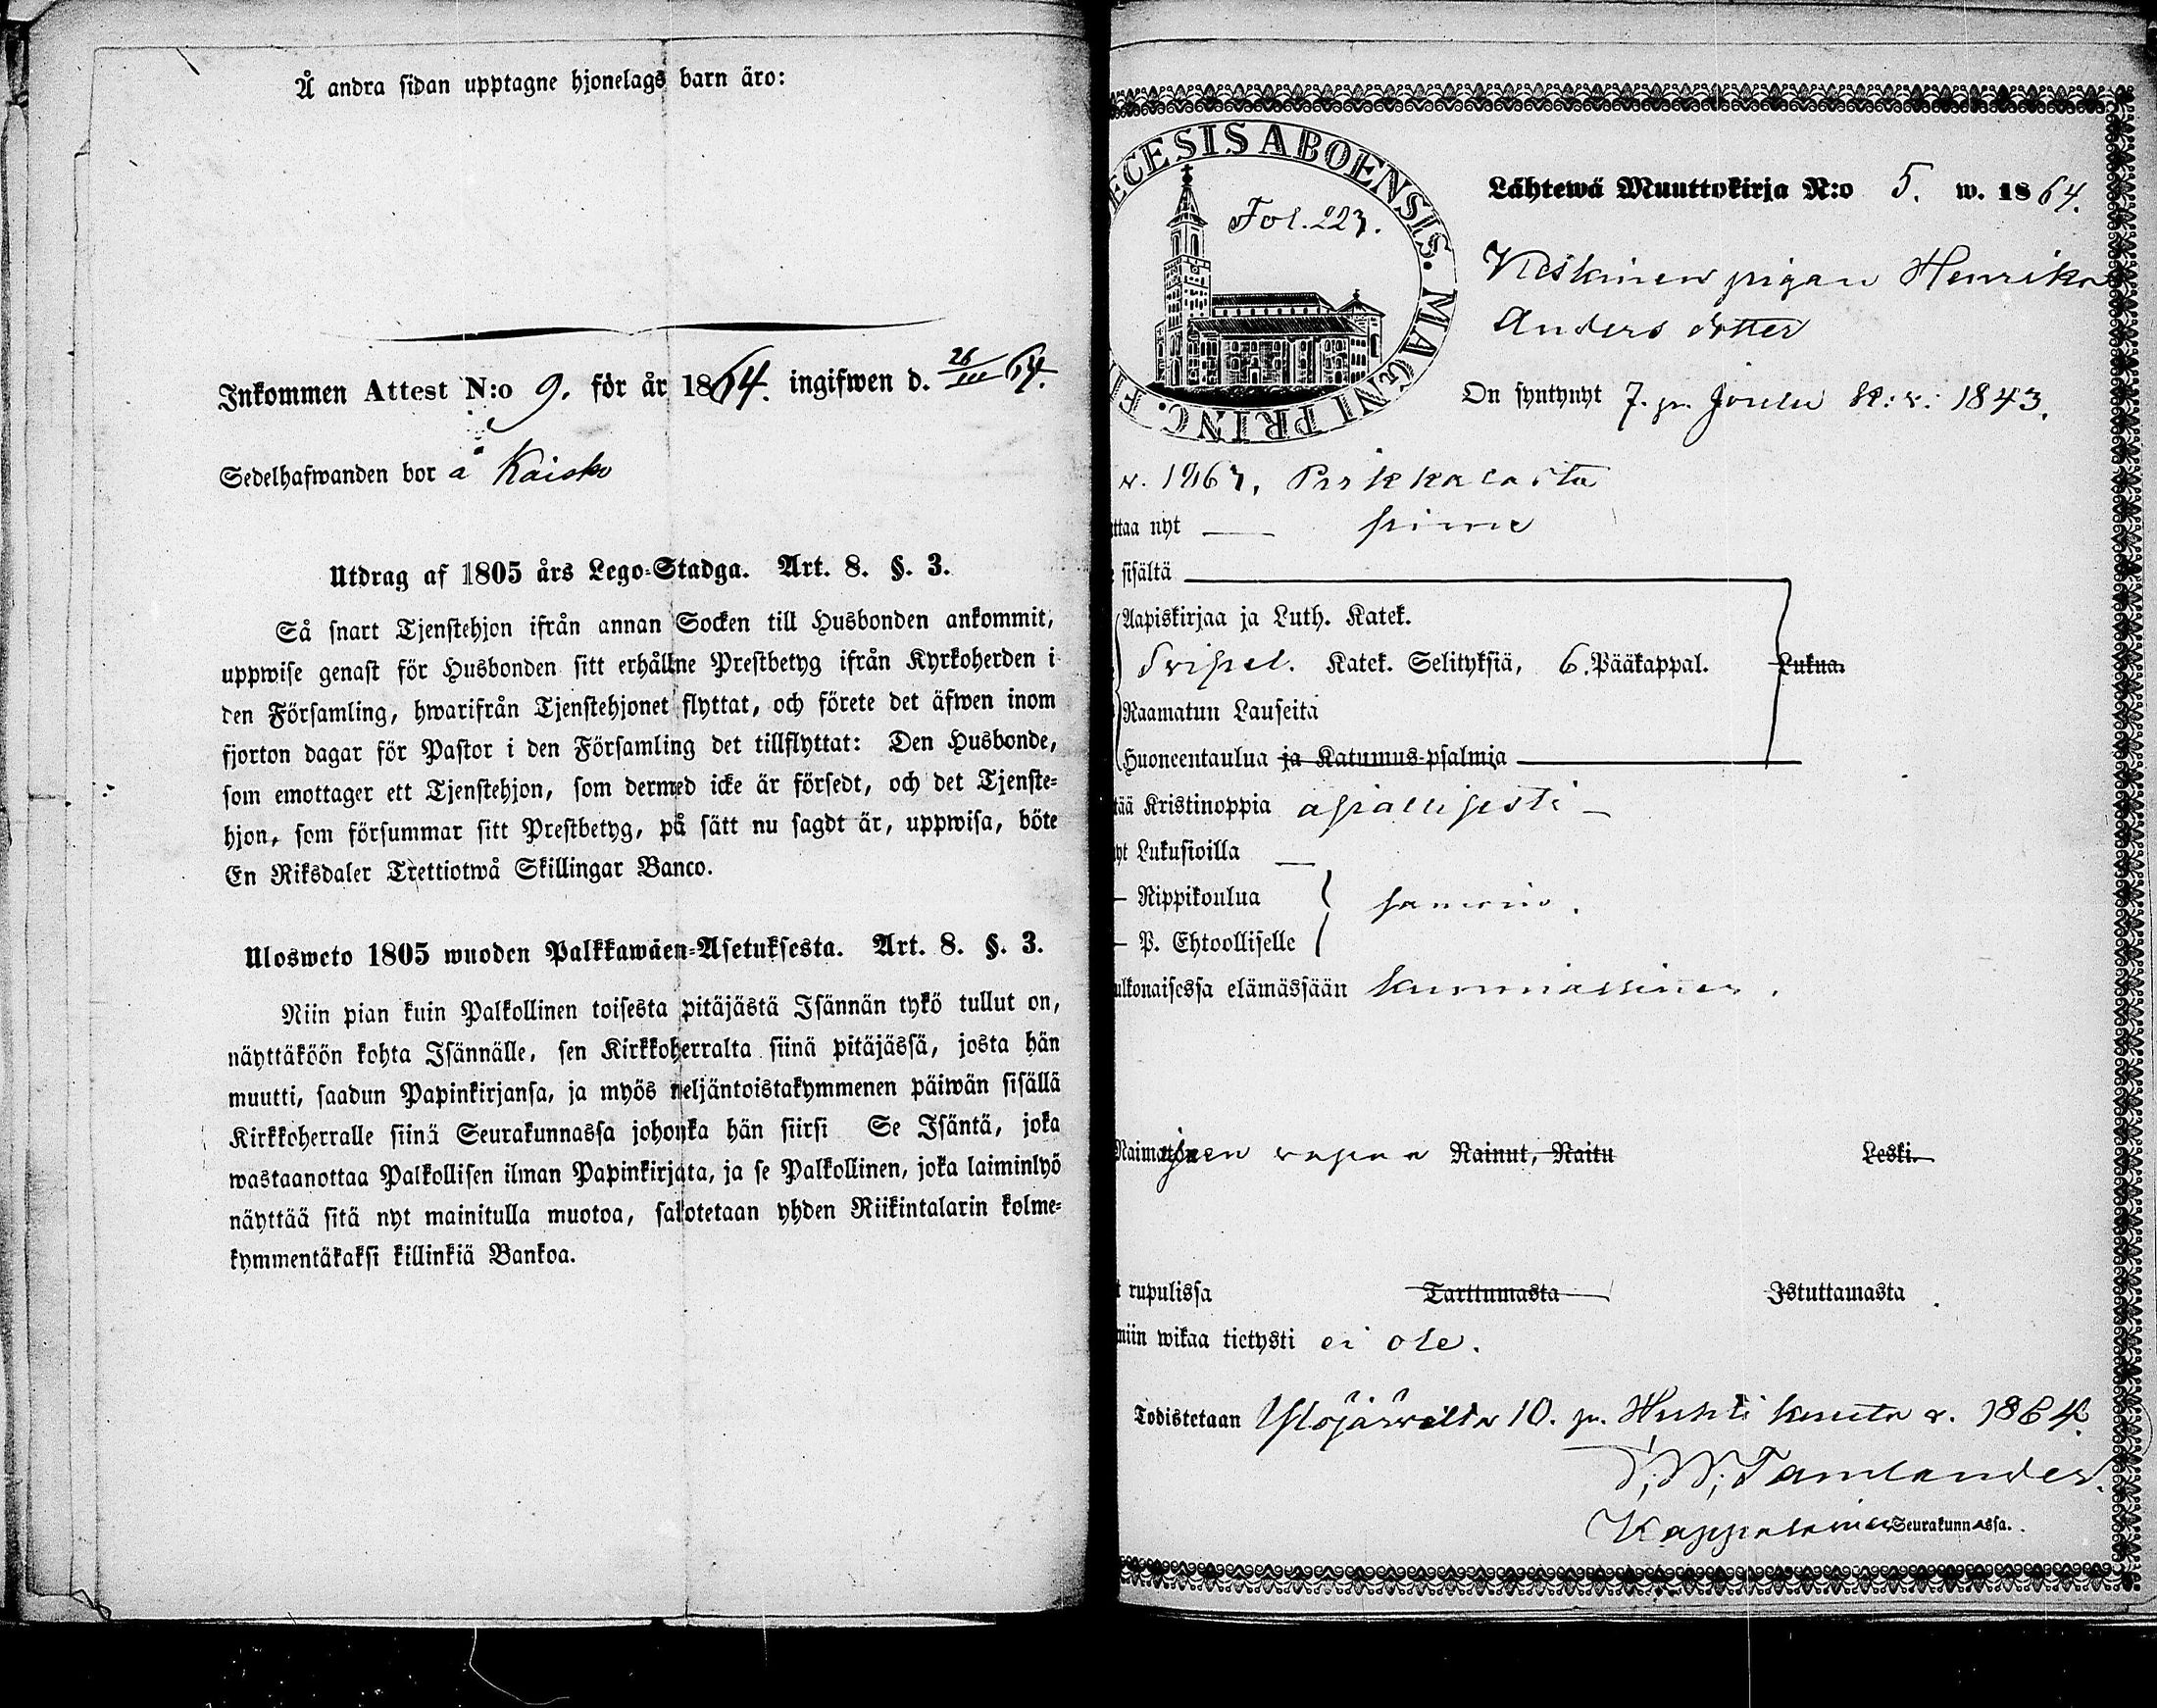 Å andra sidan upptagne hjonelags barn äro:
Inkommen Attest N:o 9. för år 1864. ingifwen d. 26/III 64.
Sedelhafwanden bor å Kaisko
Utdrag af 1805 års Lego-Stadga. Art. 8. §. 3.
Så snart Tjenstehjon ifrån annan Socken till Husbonden ankommit,
uppwise genast för Husbonden sitt erhållne Prestbetyg ifrån Kyrkoherden i
den Församling, hwarifrån Tjenstehjonet flyttat, och förete det äfwen inom
fjorton dagar för Pastor i den Församling det tillflyttat: Den Husbonde,
som emottager ett Tjenstehjon, som dermed icke är försedt, och det Tjenste-
hjon, som försummar sitt Prestbetyg, på sätt nu sagdt är, uppwisa, böte
En Riksdaler Trettiotwå Skillingar Banco.
Ulosweto 1805 wuoden Palkkawäen-Asetuksesta. Art. 8. §. 3.
Niin pian kuin Palkollinen toisesta pitäjästä Isännän tykö tullut on,
näyttäköön kohta Isännälle, sen Kirkkoherralta siinä pitäjässä, josta hän
muutti, saadun Papinkirjansa, ja myös neljäntoistakymmenen päiwän sisällä
Kirkkoherralle siinä Seurakunnassa johonka hän siirsi Se Isäntä, joka
wastaanottaa Palkollisen ilman Papinkirjata, ja se Palkollinen, joka laiminlyö
näyttää sitä nyt mainitulla muotoa, sakotetaan yhden Riikintalarin kolme-
kymmentäkaksi killinkiä Bankoa.
ECESIS ABOENSIS. MAGNI PRINC. F
Fol. 223.
Lähtewä Muuttokirja N:o 5. w. 1864.
Keskinen pigan Henrika
Anders dotter
On syntynyt 7. p. Joulu K: v: 1843.
v. 1863, Pirkkalasta
ttaa nyt — sinne
sisältä
Aapiskirjaa ja Luth. Katek.
Svipel. Katek. Selityksiä, 6. Pääkappal. Lukua.
Raamatun Lauseita
Huoneentaulua ja Katumus-psalmja
tää Kristinoppia asiallisesti —
yt Lukusioilla —
— Rippikoulua
samoin.
— P. Ehtoolliselle
ulkonaisessa elämässään kunniallinen.
Naimatoin en vapaa Nainut, Naitu Leski.
t rupulissa Tarttumasta Istuttamasta
niin wikaa tietysti ei ole.
Todistetaan Ylöjärveltä 10. p. Huhti kuuta v. 1864.
Tamlander.
Kappalainen Seurakunnassa.